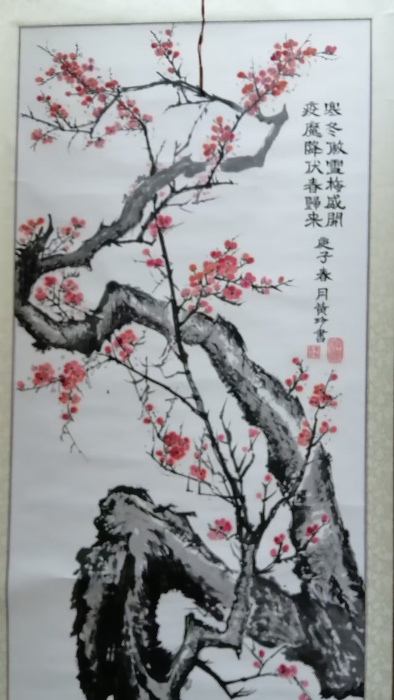 寒冬傲雪梅盛開
疫魔降伏春歸来
庚子春月黄玲書